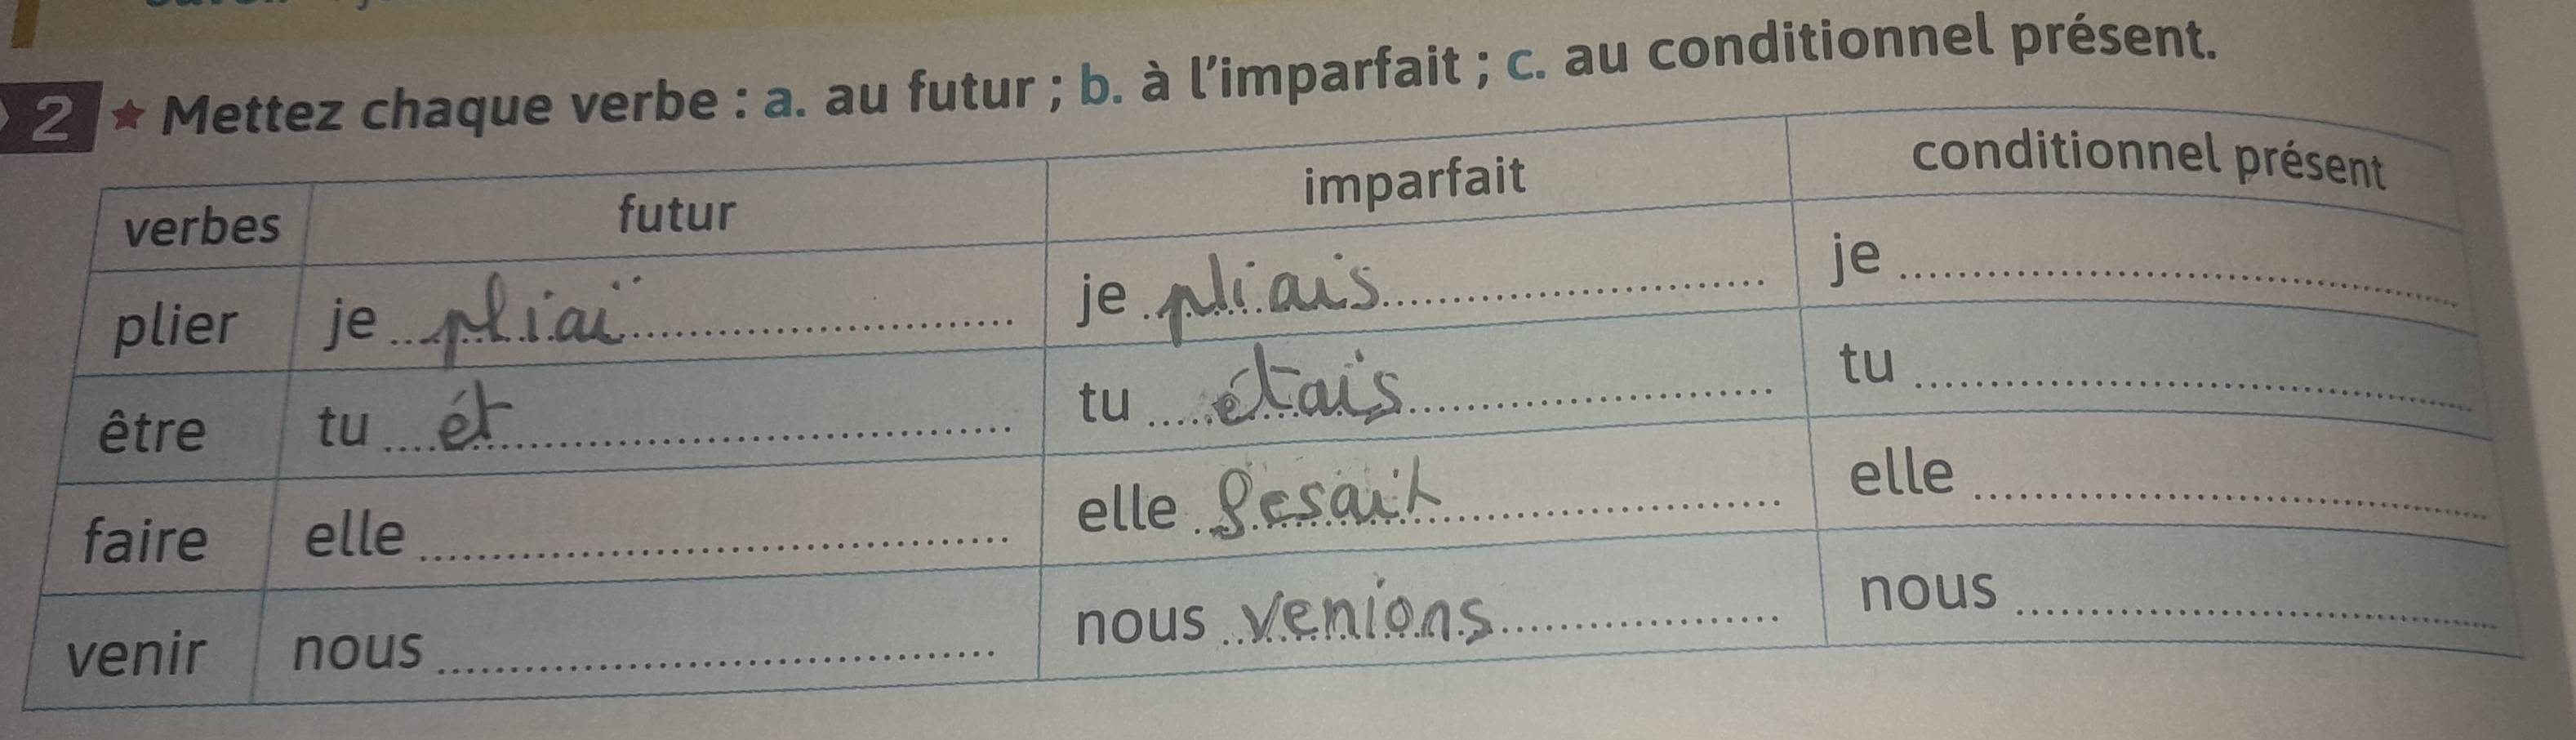 2 ★ Mettez chaque verbe : a. au futur ; b. à l'imparfait ; c. au conditionnel présent.
verbes futur imparfait conditionnel présent
plier je pliaï je pliais je
être tu ét tu étais tu
faire elle elle fesait elle
venir nous nous venions nous